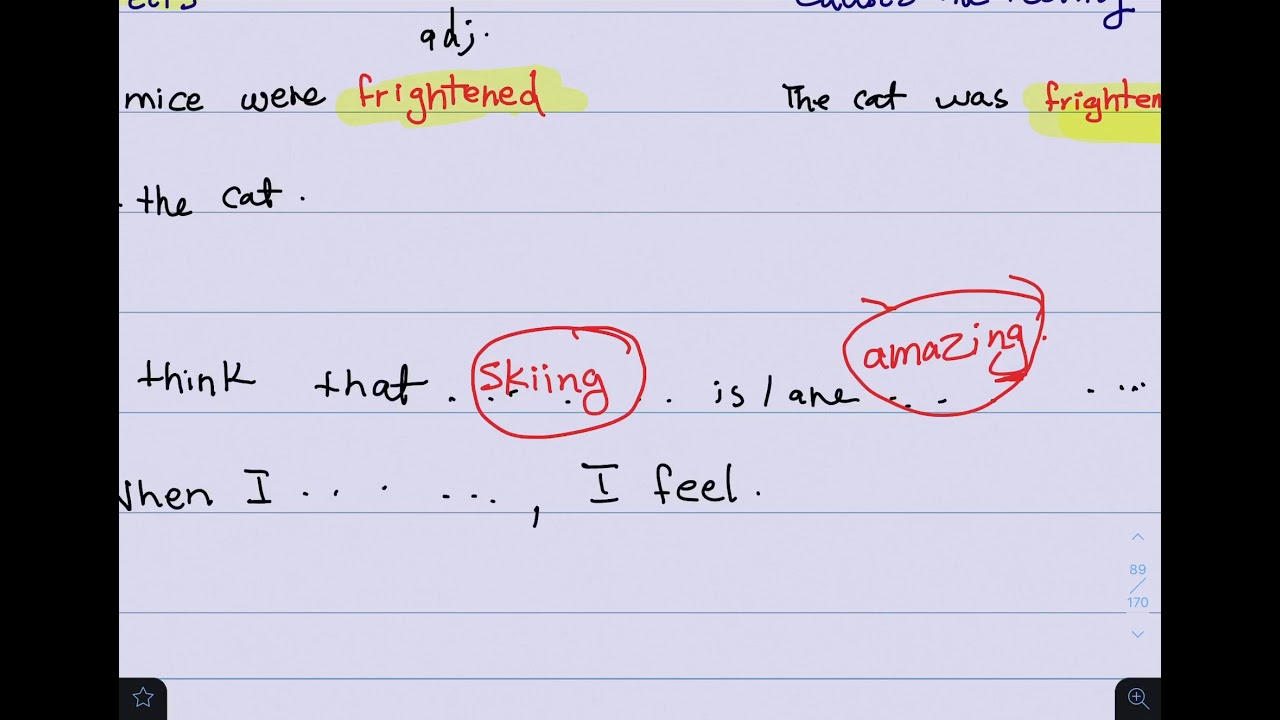 adj.
mice were frightened The cat was frighten
. the cat.
think that skiing is / are amazing. ....
When I . . . ..., I feel.
89
170